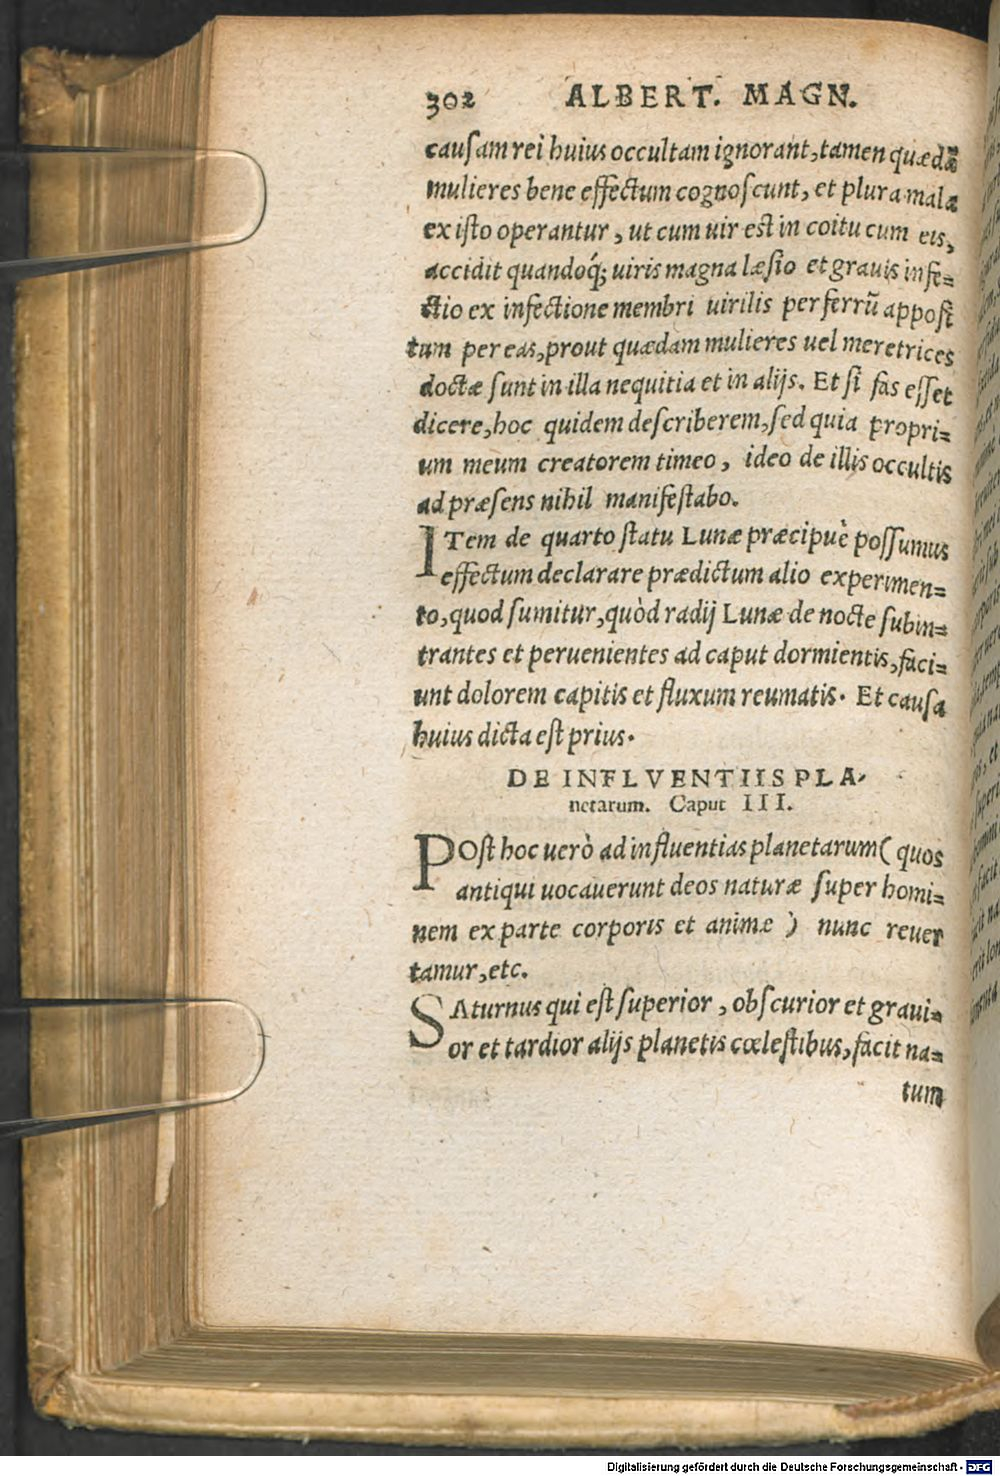 302 ALBERT. MAGN.
causam rei huius occultam ignorant, tamen quædã
mulieres bene effectum cognoscunt, et plura mala
ex isto operantur, ut cum uir est in coitu cum eis,
accidit quandoq́; uiris magna læsio et grauis infe=
ctio ex infectione membri uirilis per ferrũ apposi
tum per eas, prout quædam mulieres uel meretrices
doctæ sunt in illa nequitia et in alijs. Et si fas esset
dicere, hoc quidem describerem, sed quia propri=
um meum creatorem timeo, ideo de illis occultis
ad præsens nihil manifestabo.
ITem de quarto statu Lunæ præcipuè possumus
effectum declarare prædictum alio experimen=
to, quod sumitur, quòd radij Lunæ de nocte subin=
trantes et peruenientes ad caput dormientis, faci=
unt dolorem capitis et fluxum reumatis. Et causa
huius dicta est prius.
DE INFLVENTIIS PLA-
netarum. Caput III.
POst hoc uerò ad influentias planetarum ( quos
antiqui uocauerunt deos naturæ super homi=
nem ex parte corporis et animæ ) nunc reuer
tamur, etc.
SAturnus qui est superior, obscurior et graui=
or et tardior alijs planetis cœlestibus, facit na=
tum
Digitalisierung gefördert durch die Deutsche Forschungsgemeinschaft - DFG